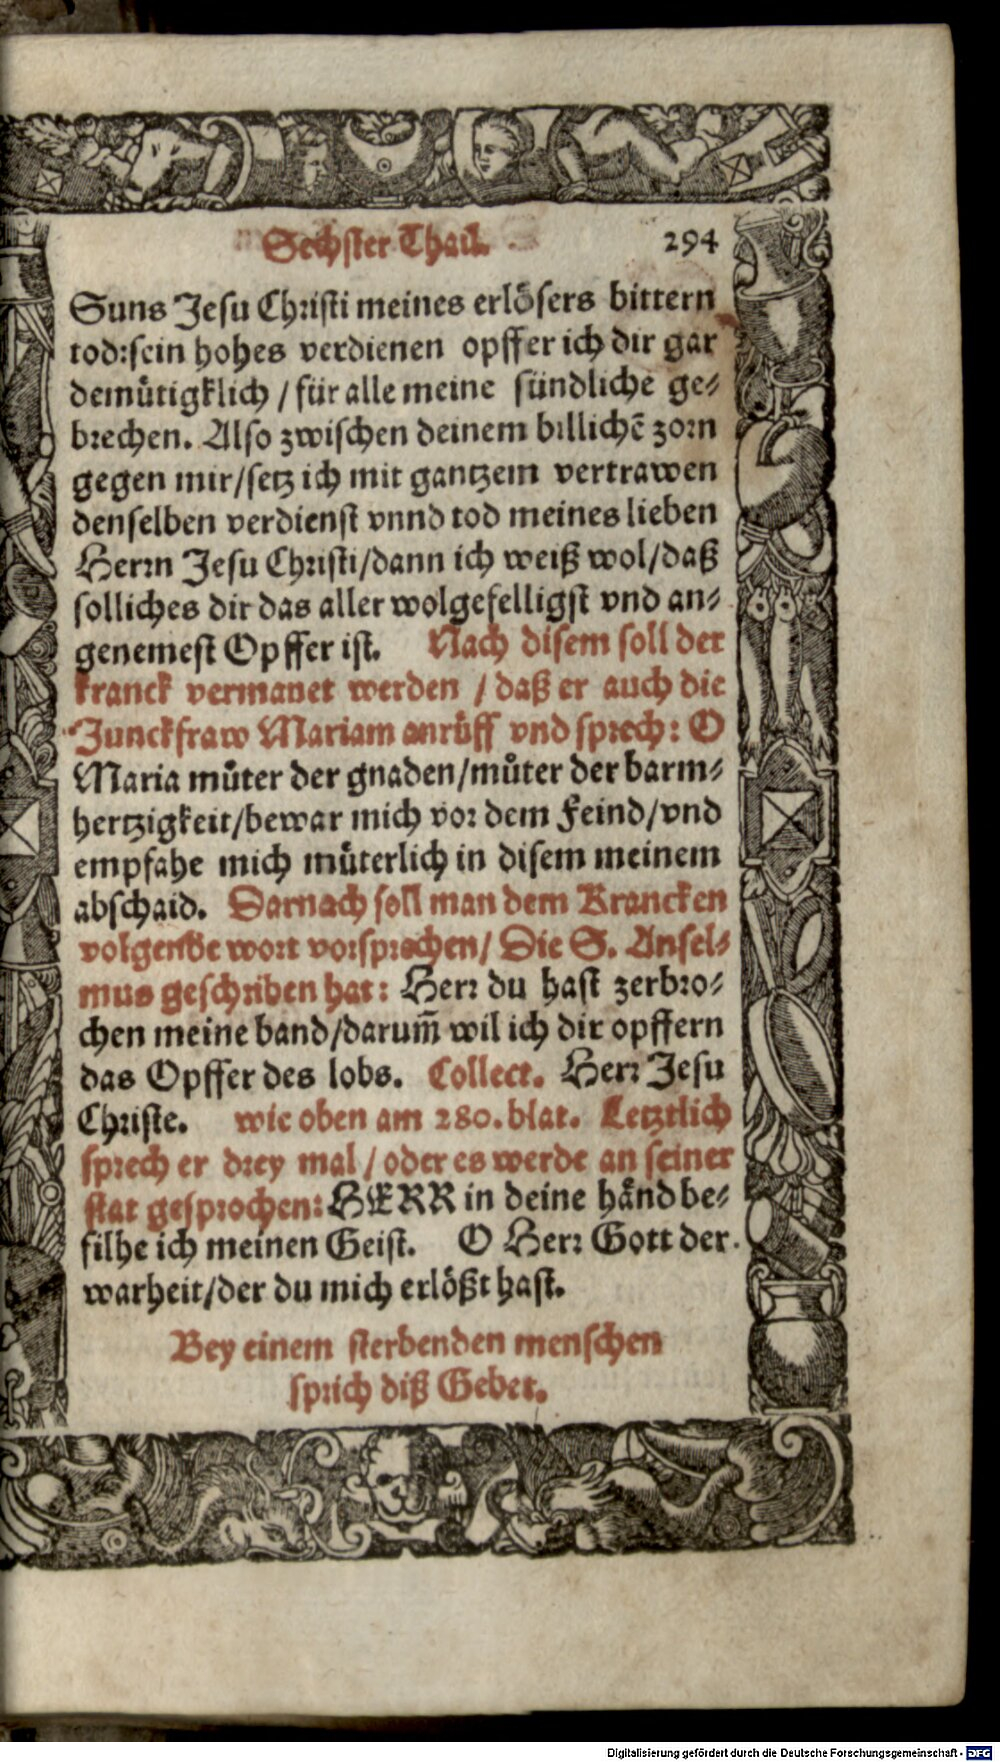 Sechster Thail. 294
Suns Jesu Christi meines erlösers bittern
tod:sein hohes verdienen opffer ich dir gar
demuͤtigklich / für alle meine sündliche ge-
brechen. Also zwischen deinem billichẽ zorn
gegen mir/setz ich mit gantzem vertrawen
denselben verdienst vnnd tod meines lieben
Herrn Jesu Christi/dann ich weiß wol/daß
solliches dir das aller wolgefelligst vnd an-
genemest Opffer ist. Nach disem soll der
kranck vermanet werden / daß er auch die
Junckfraw Mariam anruͤff vnd sprech: O
Maria muͦter der gnaden/muͦter der barm-
hertzigkeit/bewar mich vor dem Feind/vnd
empfahe mich muͤterlich in disem meinem
abschaid. Darnach soll man dem Krancken
volgende wort vorsprechen/ Die S. Ansel-
mus geschriben hat: Herr du hast zerbro-
chen meine band/darum̃ wil ich dir opffern
das Opffer des lobs. Collect. Herr Jesu
Christe. wie oben am 280. blat. Letztlich
sprech er drey mal / oder es werde an seiner
stat gesprochen: HERR in deine haͤnd be-
filhe ich meinen Geist. O Herr Gott der
warheit/der du mich erlößt hast.
Bey einem sterbenden menschen
sprich diß Gebet.
Digitalisierung gefördert durch die Deutsche Forschungsgemeinschaft - DFG